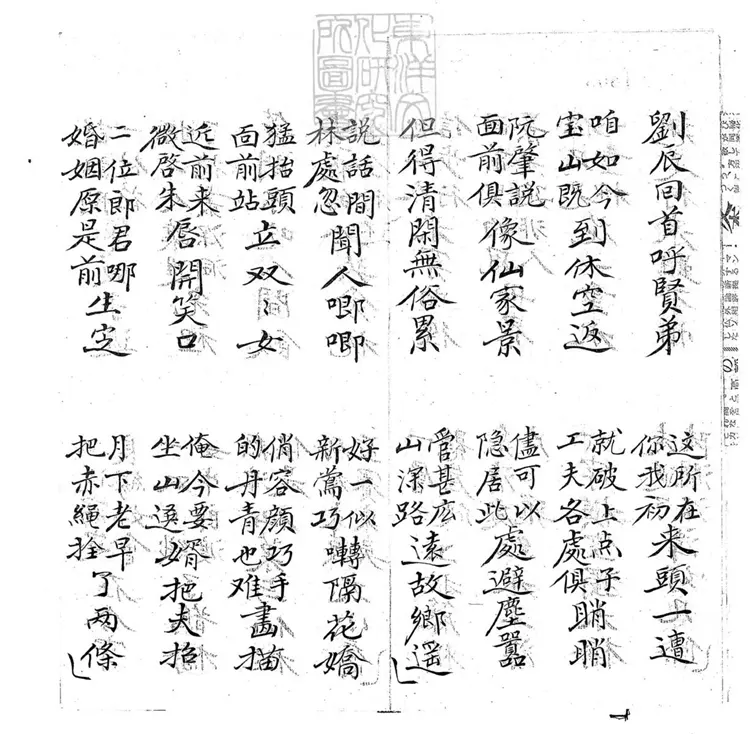 東洋文化研究所圖書
劉辰回首呼賢弟
这所在你我初来頭一遭
咱如今宝山既到休空返
就破上点子工夫各處俱睄睄
阮肇説面前俱像仙家景
儘可以隐居此處避塵囂
但得清閑無俗累
管甚庅山深路遠故鄉遥
説話間林處忽聞人唧唧
好一似新鶯巧囀隔花嬌
猛抬頭面前站立双〻女
俏容顔巧手的丹青也难畵描
近前来微啓朱唇開笑口
俺今要坐山選婿把夫招
二位郎君哪婚姻原是前生定
月下老早把赤繩拴了两條